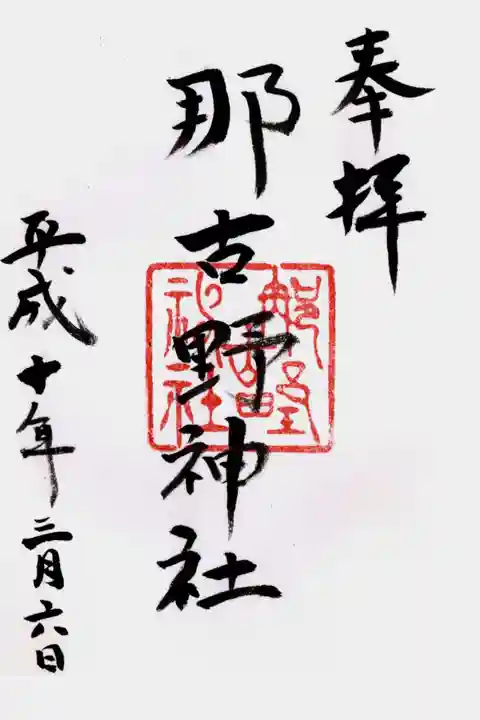 奉拝
那古野神社
平成十年三月六日